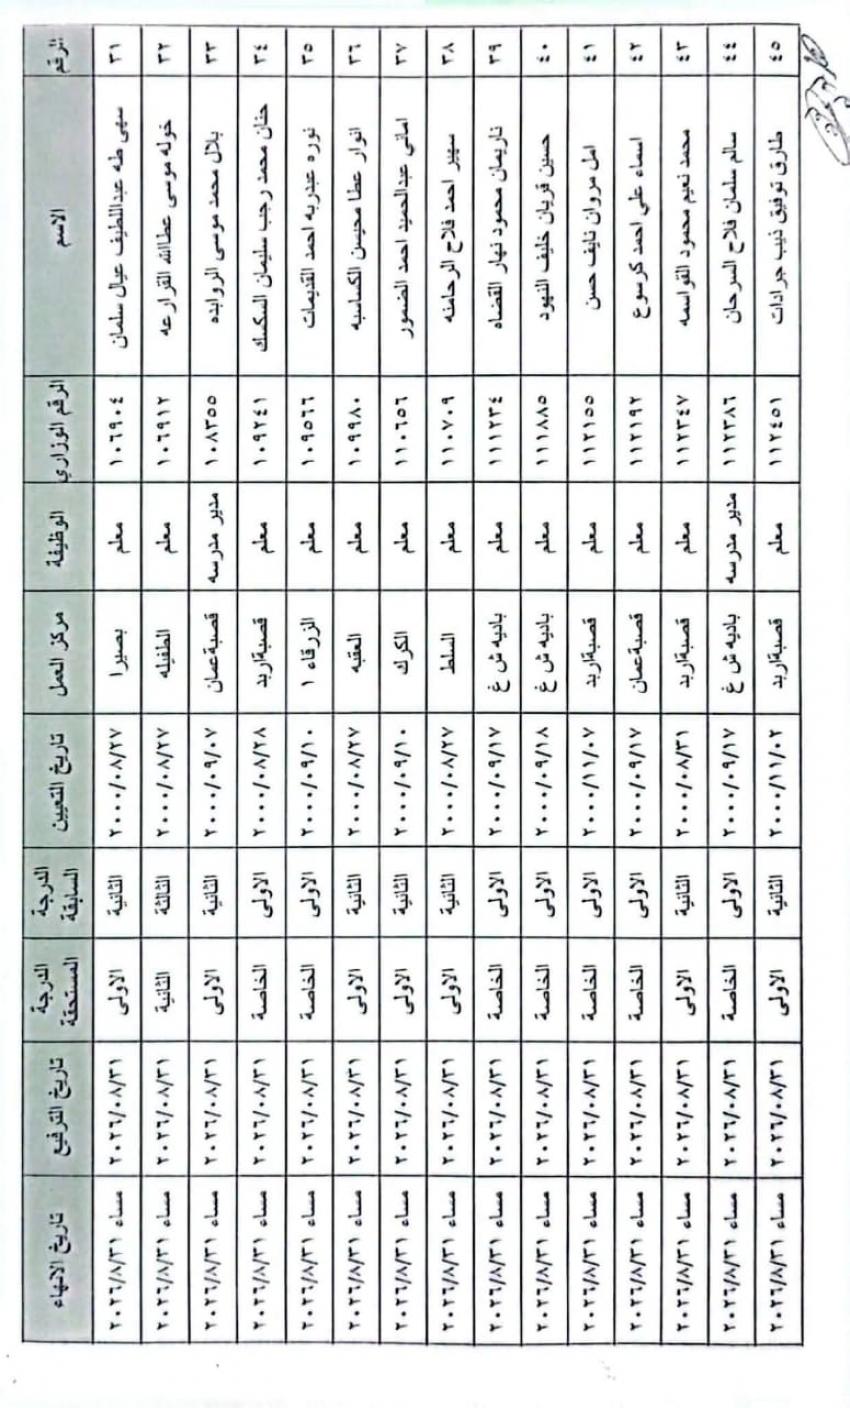 الرقم الاسم الرقم الوزاري الوظيفة مركز العمل تاريخ التعيين الدرجة السابقة الدرجة المستحقة تاريخ الترفيع تاريخ الانهاء
٣١ سهى طه عبداللطيف عيال سلمان ١٠٦٩٠٤ معلم بصيرا ٢٠٠٠/٠٨/٢٧ الثانية الاولى ٢٠٢٦/٠٨/٣١ مساء ٢٠٢٦/٨/٣١
٣٢ خوله موسى عطاالله القرارعه ١٠٦٩١٢ معلم الطفيله ٢٠٠٠/٠٨/٢٧ الثالثة الثانية ٢٠٢٦/٠٨/٣١ مساء ٢٠٢٦/٨/٣١
٣٣ بلال محمد موسى الروابده ١٠٨٣٥٥ مدير مدرسه قصبةعمان ٢٠٠٠/٠٩/٠٧ الثانية الاولى ٢٠٢٦/٠٨/٣١ مساء ٢٠٢٦/٨/٣١
٣٤ حنان محمد رجب سليمان السكسك ١٠٩٢٤١ معلم قصبةاربد ٢٠٠٠/٠٨/٢٨ الاولى الخاصة ٢٠٢٦/٠٨/٣١ مساء ٢٠٢٦/٨/٣١
٣٥ نوره عبدربه احمد القديمات ١٠٩٥٦٦ معلم الزرقاء ١ ٢٠٠٠/٠٩/١٠ الاولى الخاصة ٢٠٢٦/٠٨/٣١ مساء ٢٠٢٦/٨/٣١
٣٦ انوار عطا محيسن الكساسبه ١٠٩٩٨٠ معلم العقبه ٢٠٠٠/٠٨/٢٧ الثانية الاولى ٢٠٢٦/٠٨/٣١ مساء ٢٠٢٦/٨/٣١
٣٧ اماني عبدالحميد احمد الضمور ١١٠٦٥٦ معلم الكرك ٢٠٠٠/٠٩/١٠ الثانية الاولى ٢٠٢٦/٠٨/٣١ مساء ٢٠٢٦/٨/٣١
٣٨ سهير احمد فلاح الرحامنه ١١٠٧٠٩ معلم السلط ٢٠٠٠/٠٨/٢٧ الثانية الاولى ٢٠٢٦/٠٨/٣١ مساء ٢٠٢٦/٨/٣١
٣٩ ناريمان محمود نهار القضاه ١١١٢٣٤ معلم باديه ش غ ٢٠٠٠/٠٩/١٧ الاولى الخاصة ٢٠٢٦/٠٨/٣١ مساء ٢٠٢٦/٨/٣١
٤٠ حسين قريان خليف النهود ١١١٨٨٥ معلم باديه ش غ ٢٠٠٠/٠٩/١٨ الاولى الخاصة ٢٠٢٦/٠٨/٣١ مساء ٢٠٢٦/٨/٣١
٤١ امل مروان نايف حسن ١١٢١٥٥ معلم قصبةاربد ٢٠٠٠/١١/٠٧ الاولى الخاصة ٢٠٢٦/٠٨/٣١ مساء ٢٠٢٦/٨/٣١
٤٢ اسماء علي احمد كرسوع ١١٢١٩٢ معلم قصبةعمان ٢٠٠٠/٠٩/١٧ الاولى الخاصة ٢٠٢٦/٠٨/٣١ مساء ٢٠٢٦/٨/٣١
٤٣ محمد نعيم محمود القواسمه ١١٢٣٤٧ معلم قصبةاربد ٢٠٠٠/٠٨/٣١ الثانية الاولى ٢٠٢٦/٠٨/٣١ مساء ٢٠٢٦/٨/٣١
٤٤ سالم سلمان فلاح السرحان ١١٢٣٨٦ مدير مدرسه باديه ش غ ٢٠٠٠/٠٩/١٧ الاولى الخاصة ٢٠٢٦/٠٨/٣١ مساء ٢٠٢٦/٨/٣١
٤٥ طارق توفيق ذيب جرادات ١١٢٤٥١ معلم قصبةاربد ٢٠٠٠/١١/٠٢ الثانية الاولى ٢٠٢٦/٠٨/٣١ مساء ٢٠٢٦/٨/٣١